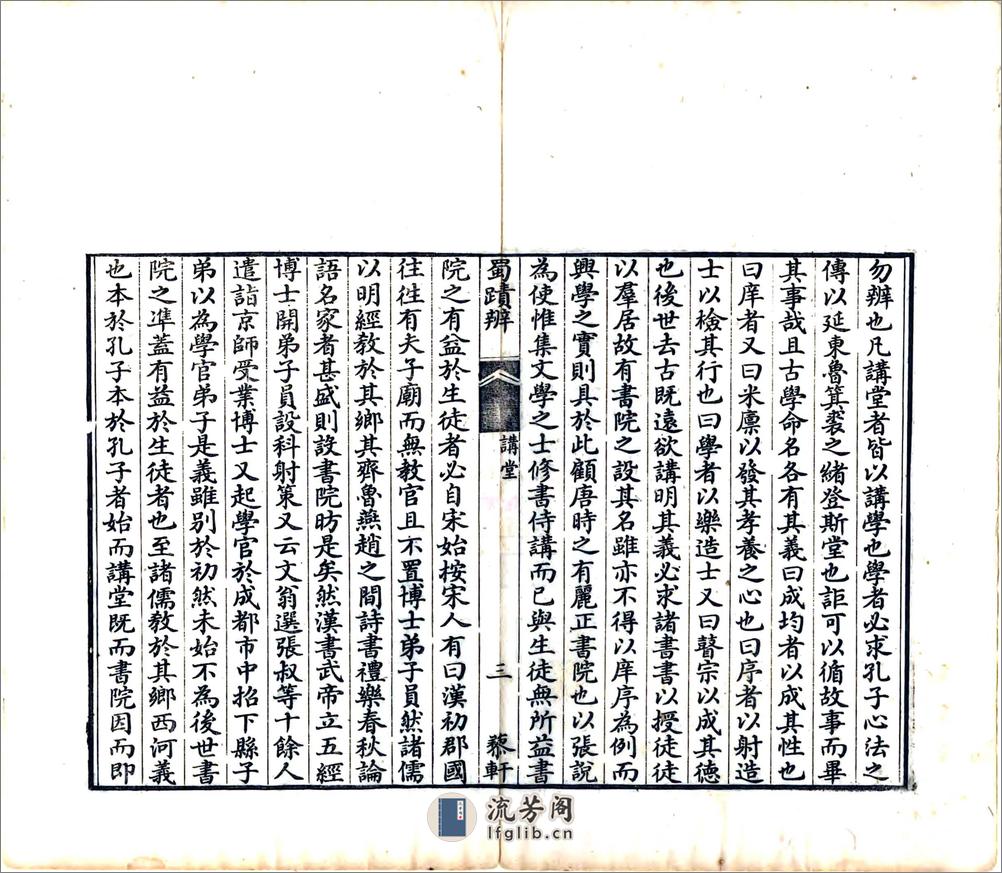 勿辨也凡講堂者皆以講學也學者必求孔子心法之
傳以延東魯箕裘之緒登斯堂也詎可以循故事而畢
其事哉且古學命名各有其義曰成均者以成其性也
曰庠者又曰米廩以發其孝養之心也曰序者以射造
士以檢其行也曰學者以樂造士又曰瞽宗以成其德
也後世去古既遠欲講明其義必求諸書書以授徒徒
以羣居故有書院之設其名雖亦不得以庠序為例而
興學之實則具於此顧唐時之有麗正書院也以張說
為使惟集文學之士修書侍講而已與生徒無所益書
蜀蹟辨 講堂 三 藜軒
院之有益於生徒者必自宋始按宋人有曰漢初郡國
往往有夫子廟而無教官且不置博士弟子員然諸儒
以明經教於其鄉其齊魯燕趙之間詩書禮樂春秋論
語名家者甚盛則設書院昉是矣然漢書武帝立五經
博士開弟子員設科射策又云文翁選張叔等十餘人
遣詣京師受業博士又起學官於成都市中招下縣子
弟以為學官弟子是義雖别於初然未始不為後世書
院之準蓋有益於生徒者也至諸儒教於其鄉西河義
也本於孔子本於孔子者始而講堂既而書院因而即
流芳阁
lfglib.cn